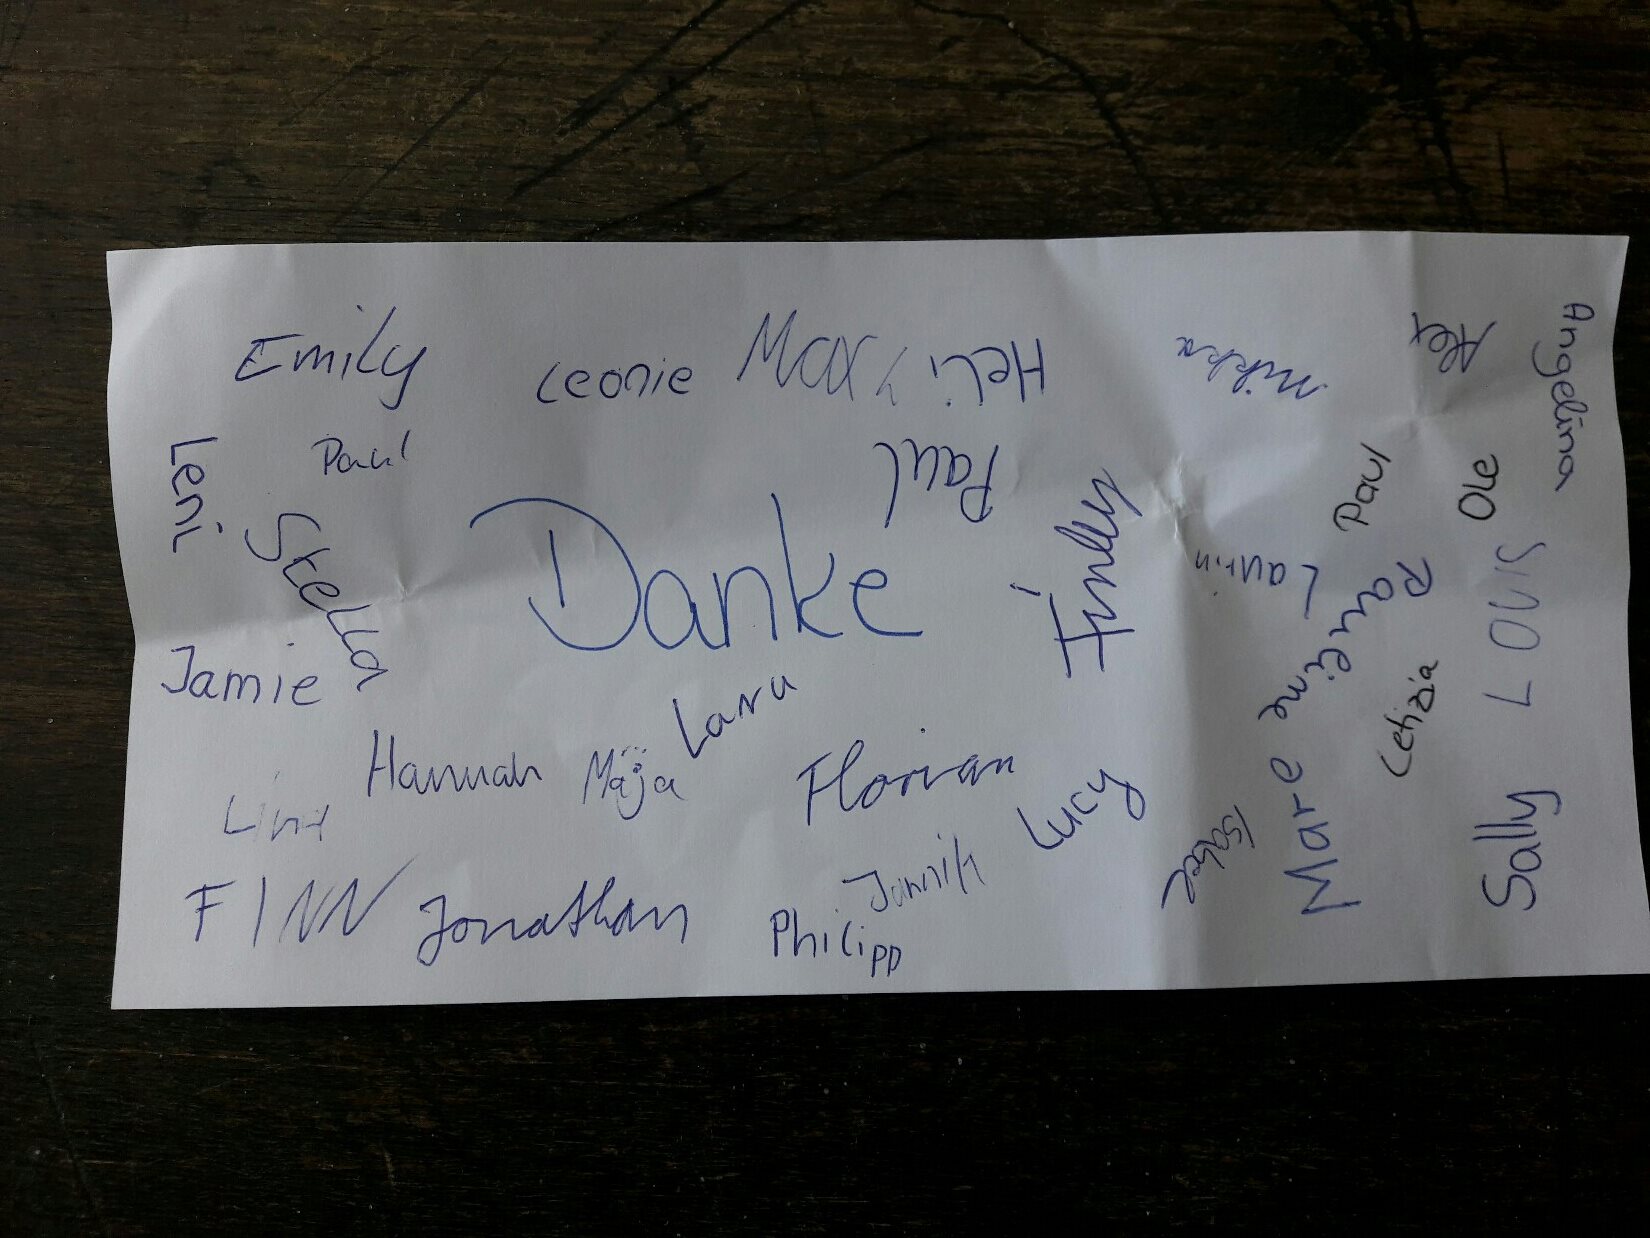 Emily
Leonie
Max
Heli
Mikka
Alex
Angelina
Leni
Paul
Paul
Paul
Ole
Stella
Danke
Finley
Laurin
Pauline
LOUIS
Jamie
Lara
Letizia
Hannah
Maja
Florian
Lucy
Mare
Sally
Lina
FINN
Jonathan
Jannik
Philipp